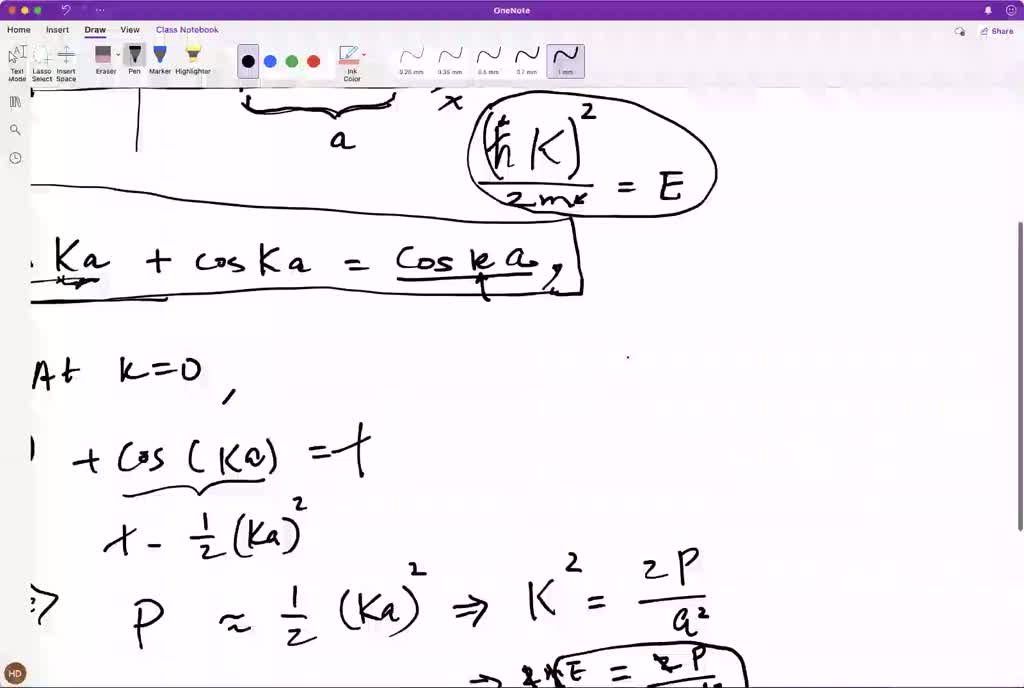 OneNote
Home Insert Draw View Class Notebook Share
Text Mode Lasso Select Insert Space Eraser Pen Marker Highlighter Ink Color 0.25 mm 0.35 mm 0.5 mm 0.7 mm 1 mm
a x
(ħ K)² / 2m = E
Ka + cos Ka = cos k a,
At k=0,
+ cos (Ka) = 1
1 - 1/2 (Ka)²
P ≈ 1/2 (Ka)² ⇒ K² = 2P / a²
E = P
HD